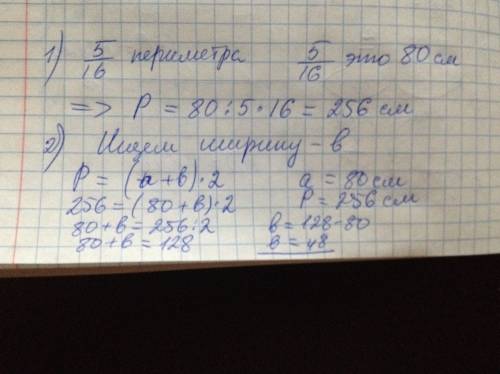 1) 5/16 периметра 5/16 это 80 см
=> P = 80 : 5 · 16 = 256 см
2) Ищем ширину - в
P = (a + в) · 2 a = 80 см
256 = (80 + в) · 2 P = 256 см
80 + в = 256 : 2 в = 128 - 80
80 + в = 128 в = 48